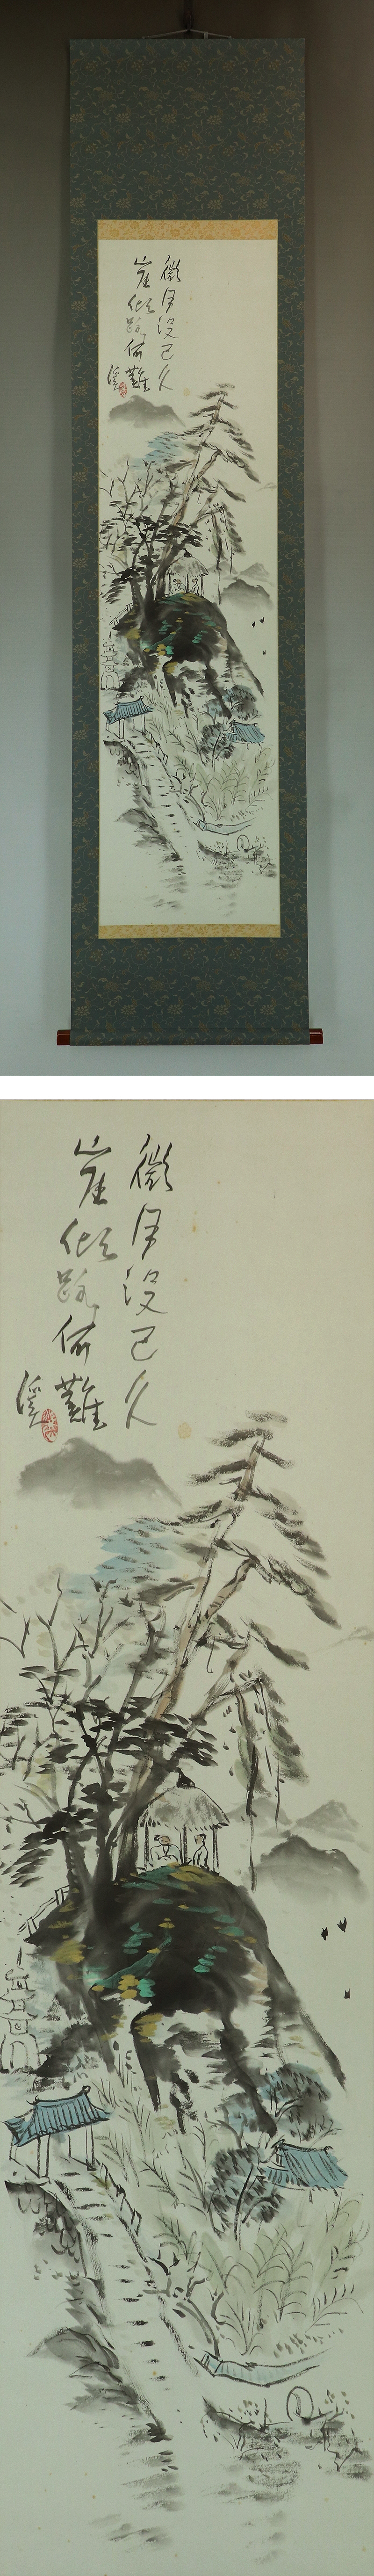 微月没已久
崖傾路何難
溪